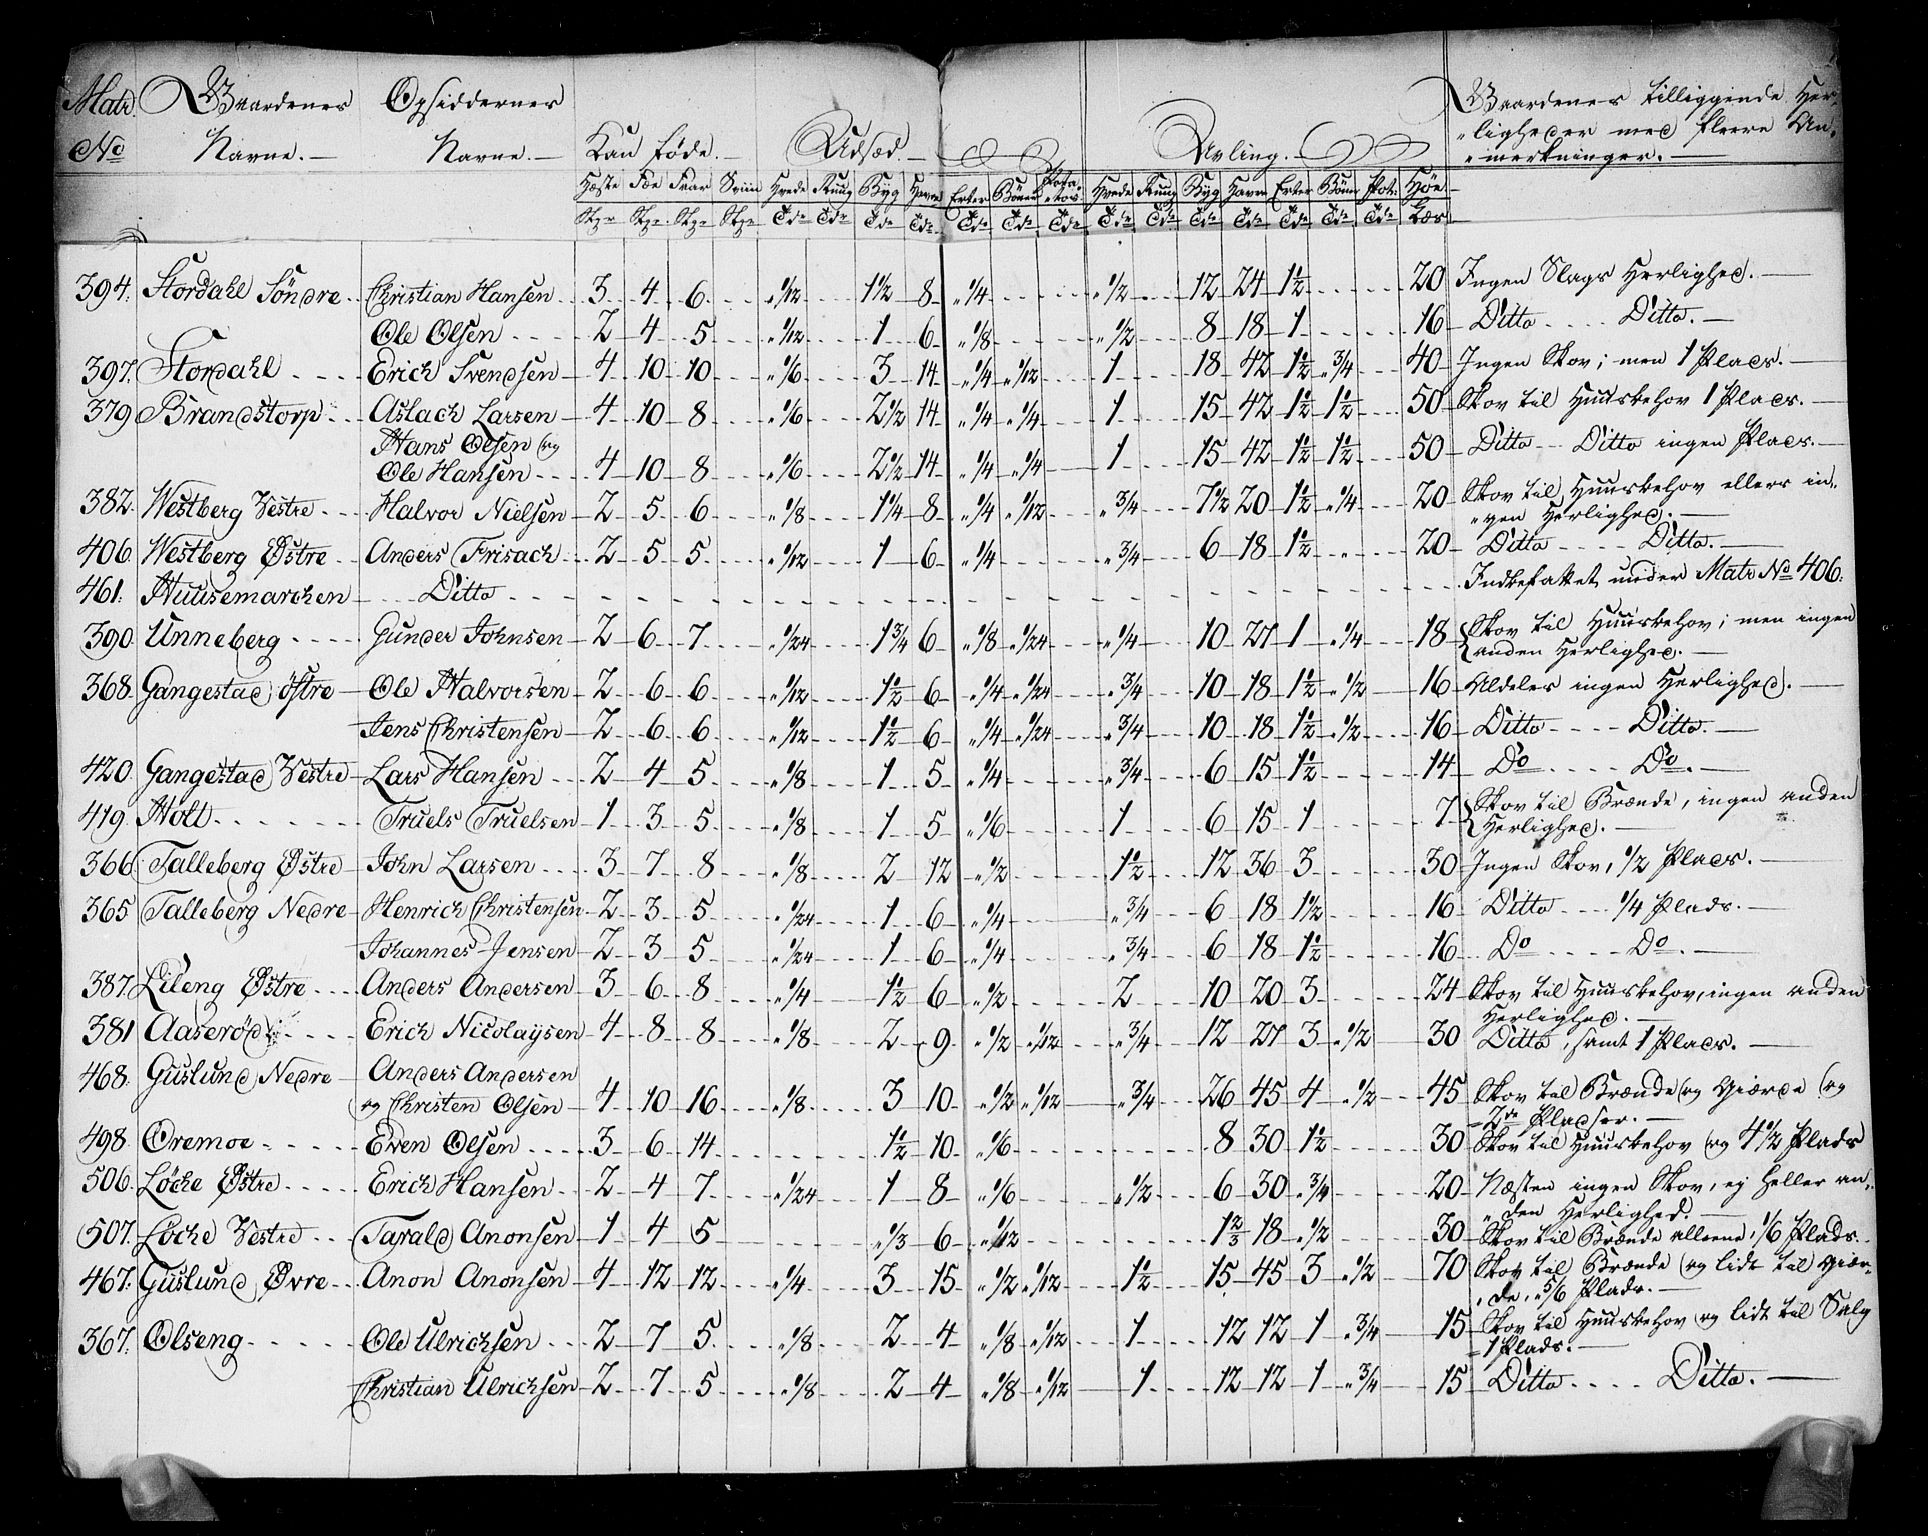 Matr. Gaardenes Opsiddernes Gaardenes tilliggende Her-
No Navne. Navne. Kan føde. Udsæd. Avling. ligheder med fleere An-
mærkninger.
Hæste Fæe Faar Sviin Hvede Ruug Byg Havre Erter Bönner Pota- Hvede Ruug Byg Havre Erter Bönner Pot: Höe
tos
Stkr Stkr Stkr Stkr Tdr Tdr Tdr Tdr Tdr Tdr Tdr Tdr Tdr Tdr Tdr Tdr Tdr Tdr Læs
394. Stordahl Söndre Christian Hansen 3 4 6 „1/12 1 1/2 8 „1/4 „1/2 12 24 1 1/2 20 Ingen Slags Herlighed.
Ole Olsen 2 4 5 „1/12 1 6 „1/8 „1/2 8 18 1 16 Ditto Ditto.
397. Stordahl Erich Svendsen 4 10 10 „1/6 3 14 „1/4 „1/12 1 18 42 1 1/2 „3/4 40 Ingen Skov; men 1 Plads.
379 Brandstorp Aslach Larsen 4 10 8 „1/6 2 1/2 14 „1/4 „1/4 1 15 42 1 1/2 1 1/2 50 Skov til Huusbehov 1 Plads.
Hans Olsen og
Ole Hansen 4 10 8 „1/6 2 1/2 14 „1/4 „1/4 1 15 42 1 1/2 1 1/2 50 Ditto Ditto ingen Plads.
382. Westberg Vestre Halvor Nielsen 2 5 6 „1/8 1 1/4 8 „1/4 „1/12 „3/4 7 1/2 20 1 1/2 „1/4 20 Skov til Huusbehov ellers in-
gen Herlighed.
406. Westberg Østre Anders Frisach 2 5 5 „1/12 1 6 „1/4 „3/4 6 18 1 1/2 „ 20 Ditto Ditto.
461. Huusemarchen Ditto Indbefattet under Matr No 406.
390. Unneberg Gunder Johnsen 2 6 7 „1/24 1 3/4 6 „1/8 „1/24 „1/4 10 27 1 „1/4 18 Skov til Huusbehov; men ingen
anden Herlighed.
368. Gangestad Østre Ole Halvorsen 2 6 6 „1/12 1 1/2 6 „1/4 „1/24 „3/4 10 18 1 1/2 „1/2 16 Aldeles ingen Herlighed.
Jens Christensen 2 6 6 „1/12 1 1/2 6 „1/4 „1/24 „3/4 10 18 1 1/2 „1/2 16 Ditto Ditto.
420. Gangestad Vestre Lars Hansen 2 4 5 „1/8 1 5 „1/4 „3/4 6 15 1 1/2 14 Do Do.
419. Holt Truels Truelsen 1 3 5 „1/8 1 5 „1/6 1 6 15 1 7 Skov til Brænde, ingen anden
Herlighed.
366. Talleberg Østre John Larsen 3 7 8 „1/8 2 12 „1/2 1 1/2 12 36 3 30 Ingen Skov, 1/2 Plads.
365 Talleberg Nedre Henrich Christensen 2 3 5 „1/24 1 6 „1/4 „3/4 6 18 1 1/2 16 Ditto 1/4 Plads.
Johannes Jensen 2 3 5 „1/24 1 6 „1/4 „3/4 6 18 1 1/2 16 Do Do.
387. Lileng Østre Anders Andersen 3 6 8 „1/4 1 1/2 6 „1/2 2 10 20 3 24 Skov til Huusbehov, ingen anden
Herlighed.
381 Aaserød Erich Nicolaysen 4 8 8 „1/8 2 9 „1/2 „1/12 „3/4 12 27 3 „1/2 30 Ditto, samt 1 Plads.
468. Guslund Nedre Anders Andersen
og Christen Olsen 4 10 16 „1/8 3 10 „1/2 „1/12 „3/4 26 45 4 „1/2 45 Skov til Brænde og Giærde og
2de Pladser.
498. Oremoe Even Olsen 3 6 14 1 1/2 10 „1/6 8 30 1 1/2 30 Skov til Huusbehov og 4 1/2 Plads
506. Løche Østre Erich Hansen 2 4 7 „1/24 1 8 „1/6 „1/2 6 30 „3/4 20 Næsten ingen Skov, ej heller an-
den Herlighed.
507. Løche Vestre Tarald Anonsen 1 4 5 „1/3 6 „1/12 1 2/3 18 „1/2 30 Skov til Brænde alleene, 1/6 Plads.
467. Guslund Øvre Anon Anonsen 4 12 12 „1/4 3 15 „1/2 „1/12 1 1/2 15 45 3 „1/2 70 Skov til Brænde og lidt til Giær-
de, „5/6 Plads.
367. Olseng Ole Ulrichsen 2 7 5 „1/8 2 4 „1/8 „1/12 1 12 12 1 „3/4 15 Skov til Huusbehov og lidt til Salg
1 Plads.
Christian Ulrichsen 2 7 5 „1/8 2 4 „1/8 „1/12 1 12 12 1 „3/4 15 Ditto Ditto.